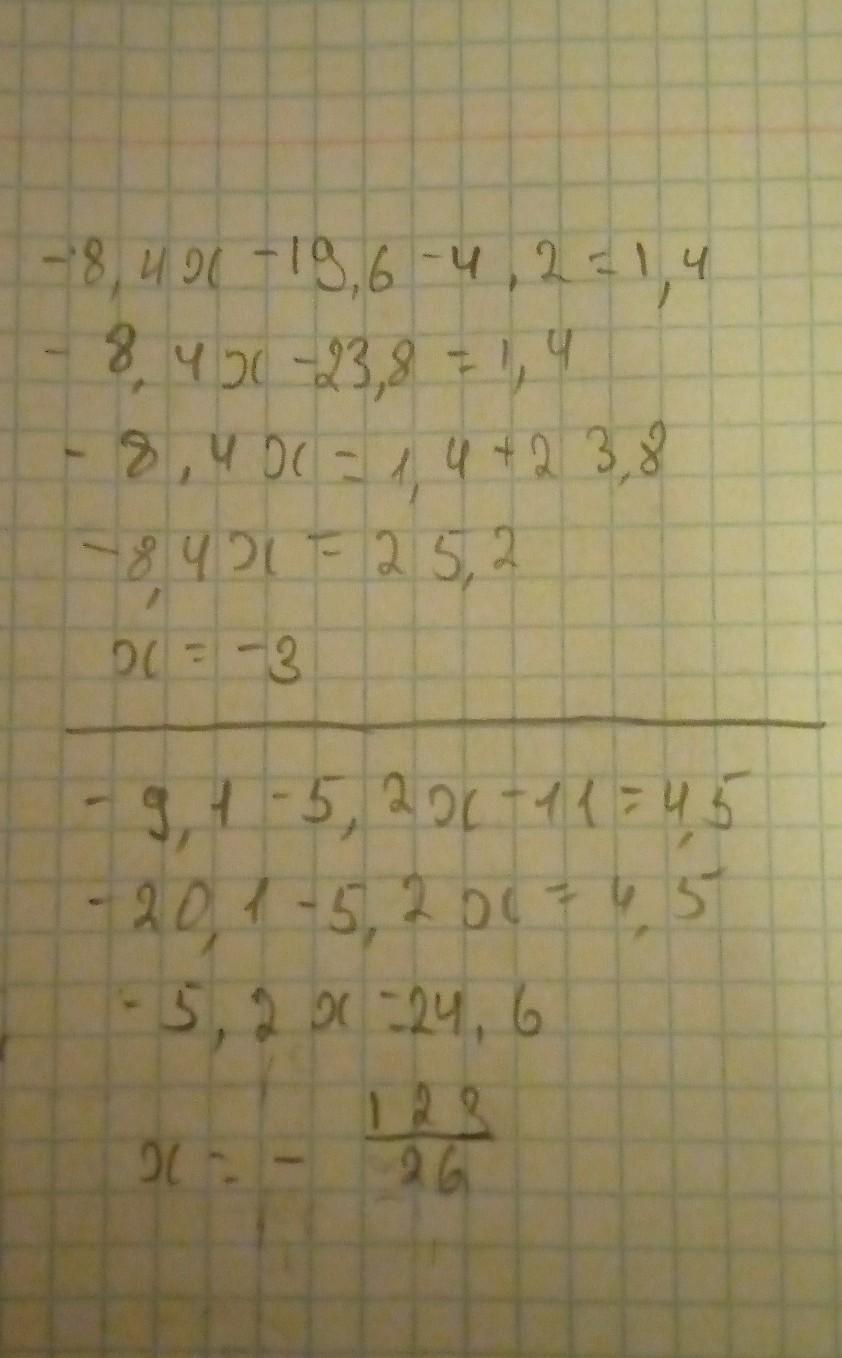 -8,4x -19,6 -4,2 = 1,4
- 8,4x -23,8 = 1,4
- 8,4x = 1,4 + 23,8
-8,4x = 25,2
x = -3
- 9,1 - 5,2x - 11 = 4,5
- 20,1 - 5,2x = 4,5
- 5,2x = 24,6
x = - 123/26